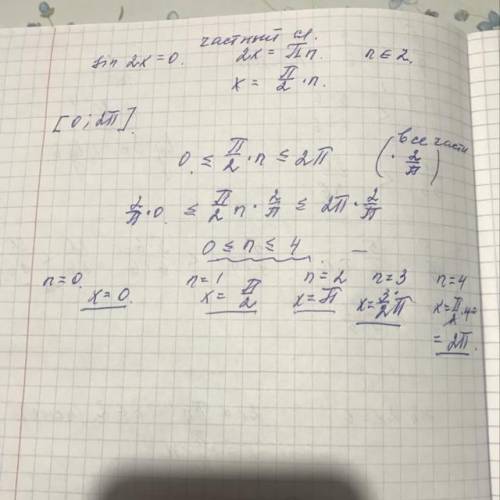 частный сл.
sin 2x = 0. 2x = πn n ∈ Z.
x = π/2 · n.
[0; 2π].
0 ≤ π/2 · n ≤ 2π (все части · 2/π)
2/π · 0 ≤ π/2 n · 2/π ≤ 2π · 2/π
0 ≤ n ≤ 4. —
n = 0. n = 1 n = 2 n = 3 n = 4
x = 0. x = π/2 x = π x = 3/2 π x = π/2 · 4 =
= 2π.